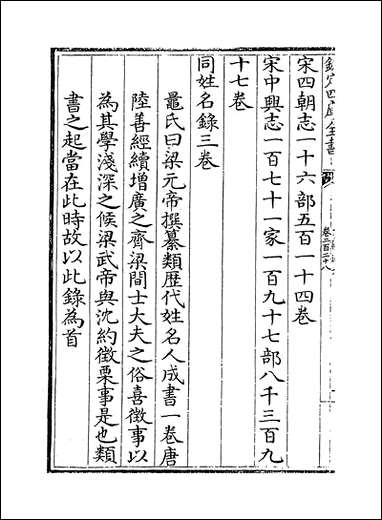 欽定四庫全書
卷二百二十八
宋四朝志一十六部五百一十四卷
宋中興志一百七十一家一百九十七部八千三百九
十七卷
同姓名錄三卷
鼂氏曰梁元帝撰纂類歴代姓名人成書一卷唐
陸善經續增廣之齊梁間士大夫之俗喜徴事以
為其學淺深之候梁武帝與沈約徴栗事是也類
書之起當在此時故以此錄為首